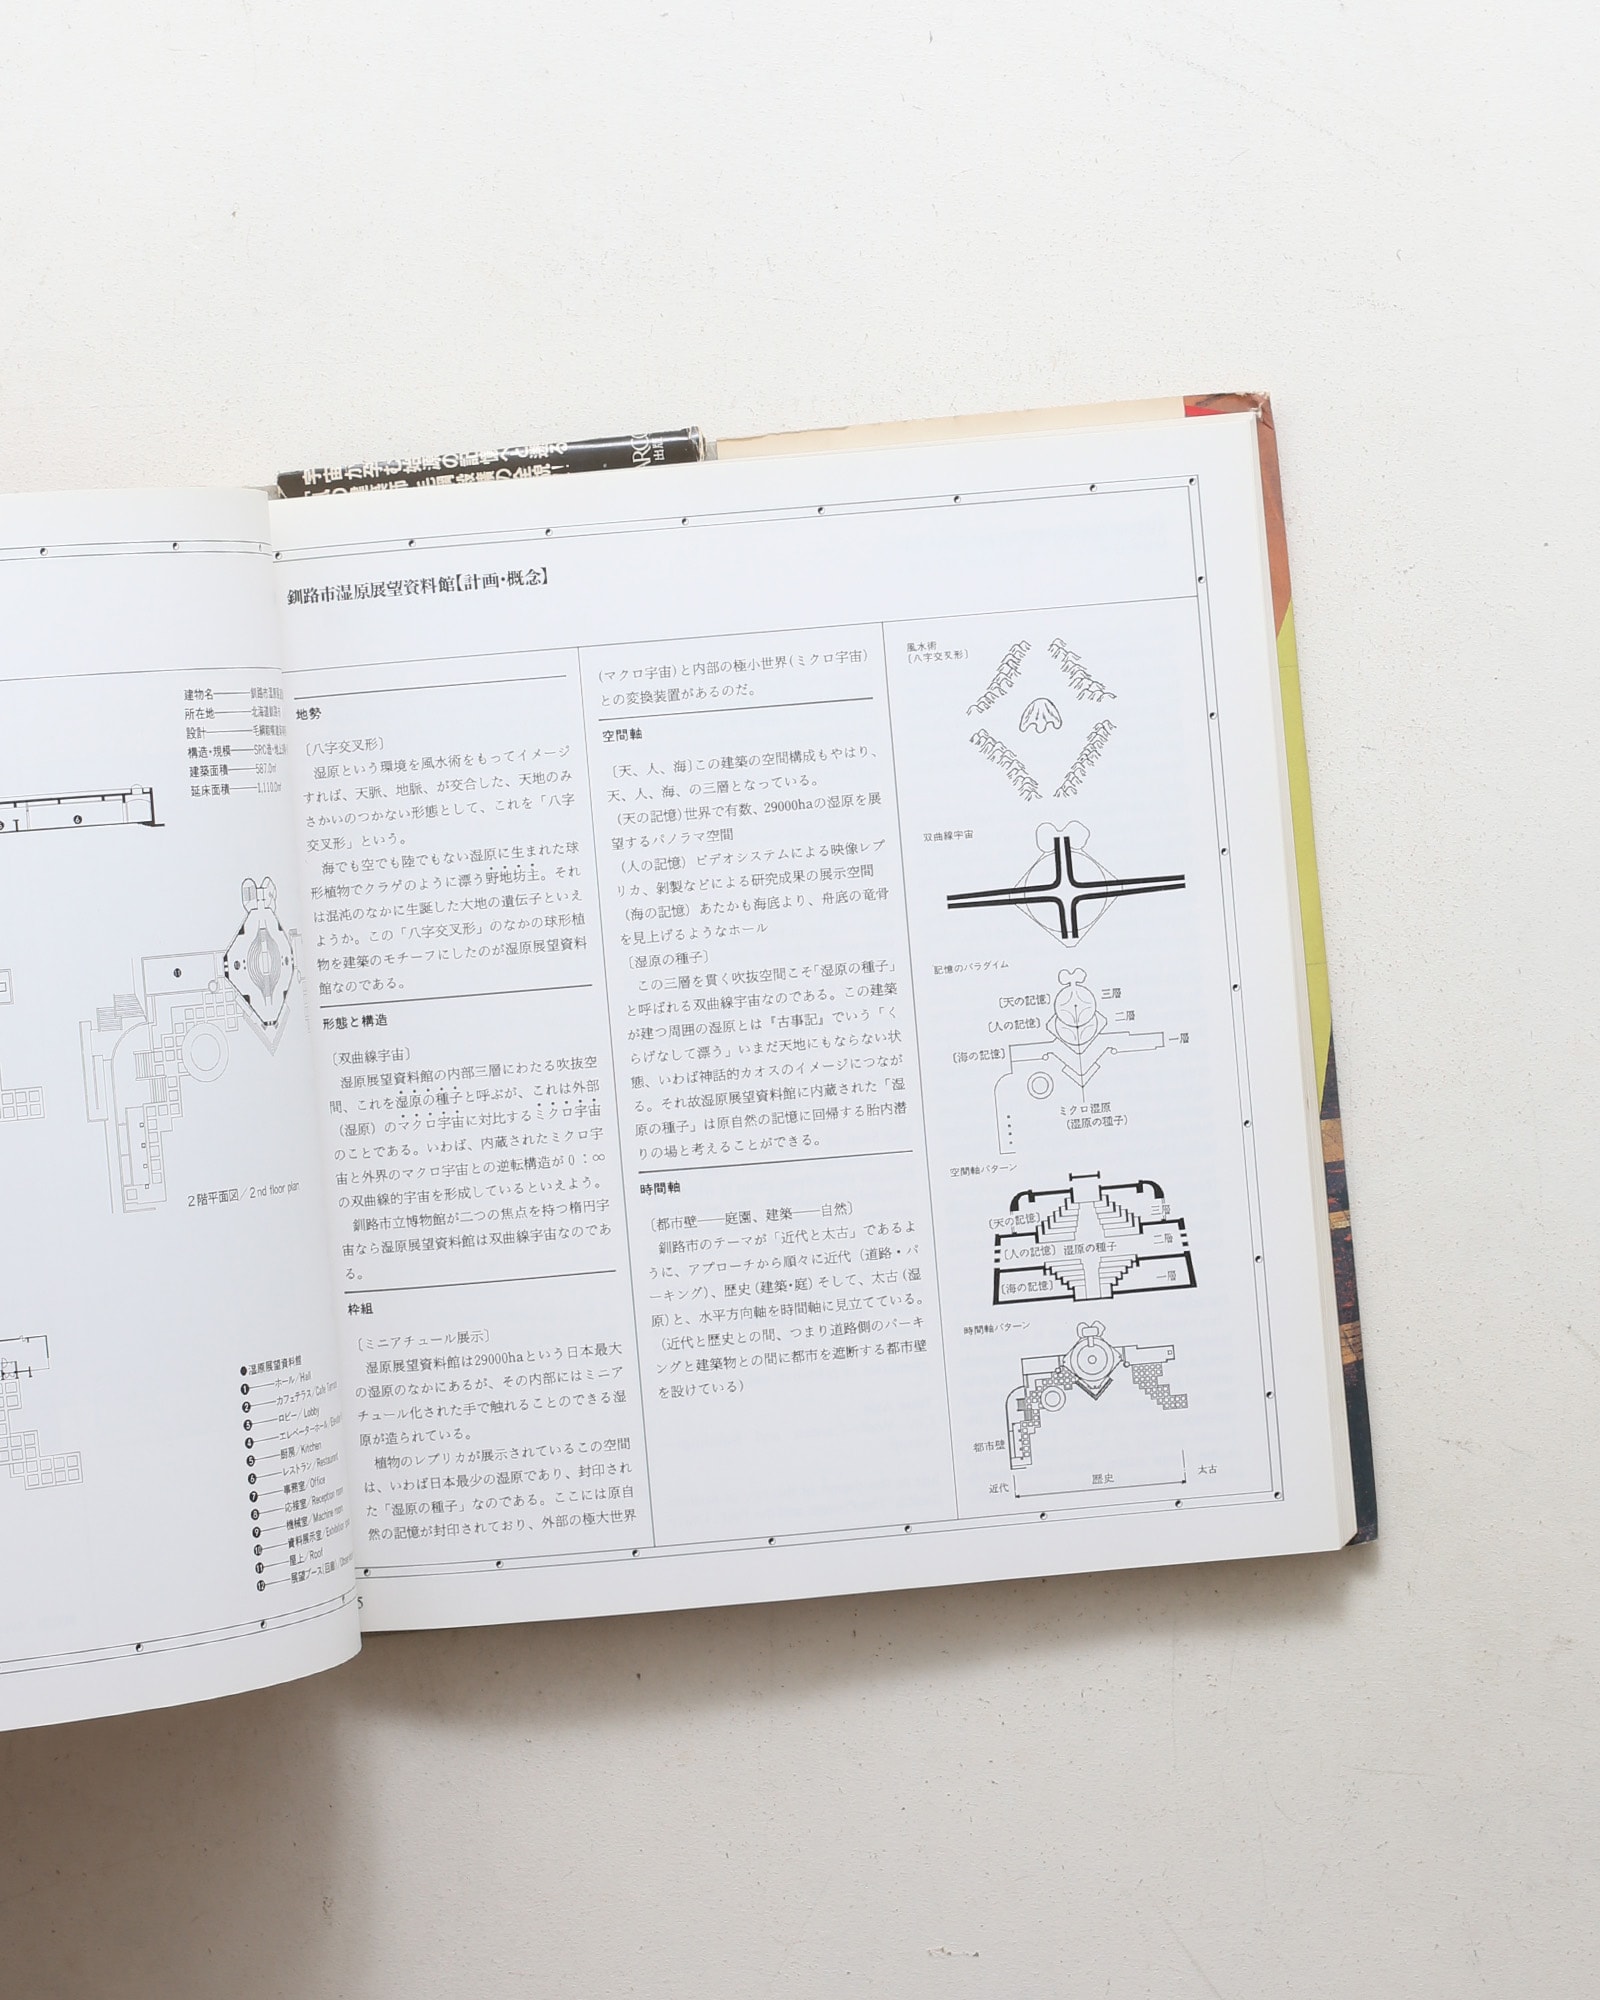 建物名
所在地
設計
構造・規模
建築面積——587.0㎡
延床面積——1,110.0㎡
2階平面図／2nd floor plan
●湿原展望資料館
❶——ホール／Hall
❷——カフェテラス／Cafe
❸——ロビー／Lobby
❹——エレベーターホール
❺——厨房／Kitchen
❻——レストラン／Restaurant
❼——事務室／Office
❽——応接室／Reception room
❾——機械室／Machine room
❿——資料展示室／Exhibition
⓫——屋上／Roof
⓬——展望ブース
釧路市湿原展望資料館【計画・概念】
地勢
〔八字交叉形〕
湿原という環境を風水術をもってイメージ
すれば、天脈、地脈、が交合した、天地のみ
さかいのつかない形態として、これを「八字
交叉形」という。
海でも空でも陸でもない湿原に生まれた球
形植物でクラゲのように漂う野地坊主。それ
は混沌のなかに生誕した大地の遺伝子といえ
ようか。この「八字交叉形」のなかの球形植
物を建築のモチーフにしたのが湿原展望資料
館なのである。
形態と構造
〔双曲線宇宙〕
湿原展望資料館の内部三層にわたる吹抜空
間、これを湿原の種子と呼ぶが、これは外部
（湿原）のマクロ宇宙に対比するミクロ宇宙
のことである。いわば、内蔵されたミクロ宇
宙と外界のマクロ宇宙との逆転構造が0：∞
の双曲線的宇宙を形成しているといえよう。
釧路市立博物館が二つの焦点を持つ楕円宇
宙なら湿原展望資料館は双曲線宇宙なのであ
る。
枠組
〔ミニアチュール展示〕
湿原展望資料館は29000haという日本最大
の湿原のなかにあるが、その内部にはミニア
チュール化された手で触れることのできる湿
原が造られている。
植物のレプリカが展示されているこの空間
は、いわば日本最少の湿原であり、封印され
た「湿原の種子」なのである。ここには原自
然の記憶が封印されており、外部の極大世界
（マクロ宇宙）と内部の極小世界（ミクロ宇宙）
との変換装置があるのだ。
空間軸
〔天、人、海〕この建築の空間構成もやはり、
天、人、海、の三層となっている。
（天の記憶）世界で有数、29000haの湿原を展
望するパノラマ空間
（人の記憶）ビデオシステムによる映像レプ
リカ、剝製などによる研究成果の展示空間
（海の記憶）あたかも海底より、舟底の竜骨
を見上げるようなホール
〔湿原の種子〕
この三層を貫く吹抜空間こそ「湿原の種子」
と呼ばれる双曲線宇宙なのである。この建築
が建つ周囲の湿原とは『古事記』でいう「く
らげなして漂う」いまだ天地にもならない状
態、いわば神話的カオスのイメージにつなが
る。それ故湿原展望資料館に内蔵された「湿
原の種子」は原自然の記憶に回帰する胎内潜
りの場と考えることができる。
時間軸
〔都市壁——庭園、建築——自然〕
釧路市のテーマが「近代と太古」であるよ
うに、アプローチから順々に近代（道路・パ
ーキング）、歴史（建築・庭）そして、太古（湿
原）と、水平方向軸を時間軸に見立てている。
（近代と歴史との間、つまり道路側のパーキ
ングと建築物との間に都市を遮断する都市壁
を設けている）
風水術
〔八字交叉形〕
双曲線宇宙
記憶のパラダイム
〔天の記憶〕
三層
〔人の記憶〕
二層
〔海の記憶〕
一層
ミクロ湿原
（湿原の種子）
空間軸パターン
〔天の記憶〕
三層
〔人の記憶〕
湿原の種子
二層
〔海の記憶〕
一層
時間軸パターン
都市壁
近代
歴史
太古